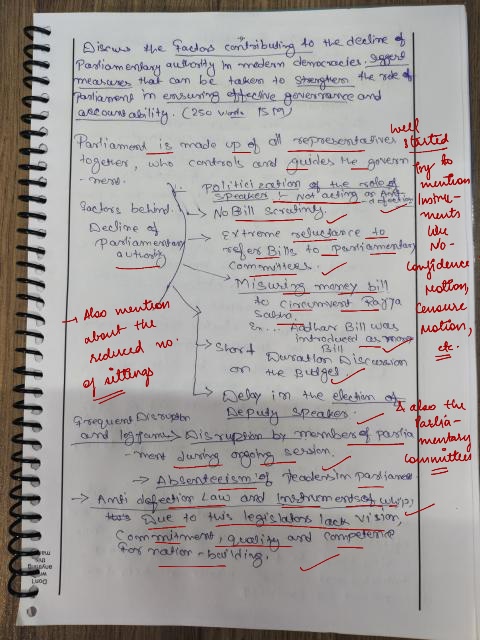 Discuss the factors contributing to the decline of
Parliamentary authority in modern democracies. Suggest
measures that can be taken to strengthen the role of
parliament in ensuring effective governance and
accountability. (250 words 15M)
Parliament is made up of all representatives
together, who controls and guides the govern
-ment.
Well
started
Factors behind
Decline of
Parliamentary
authority
Politicization of the role of
speaker & Not acting on Anti
-defection
No Bill scrutiny.
Extreme reluctance to
refer Bills to parliamentary
committees.
Misusing money bill
to circumvent Rajya
Sabha.
Ex... Aadhar Bill was
introduced as money
Bill
Short Duration Discussion
on the Budget
Delay in the election of
Deputy speaker.
try to
mention
instru-
ments
like
No-
confidence
Motion,
censure
Motion,
etc.
→ Also mention
about the
reduced no.
of sittings
& also the
Parlia-
mentary
committees
Frequent Disruption
and logjams → Disruption by member of parlia
-ment during ongoing session.
→ Absenteeism of leaders in parliament
→ Anti defection Law and Instruments of whip,
Due to this legislators lack vision,
Commitment, quality and competence
for nation-building.
Don't
write
anything
this